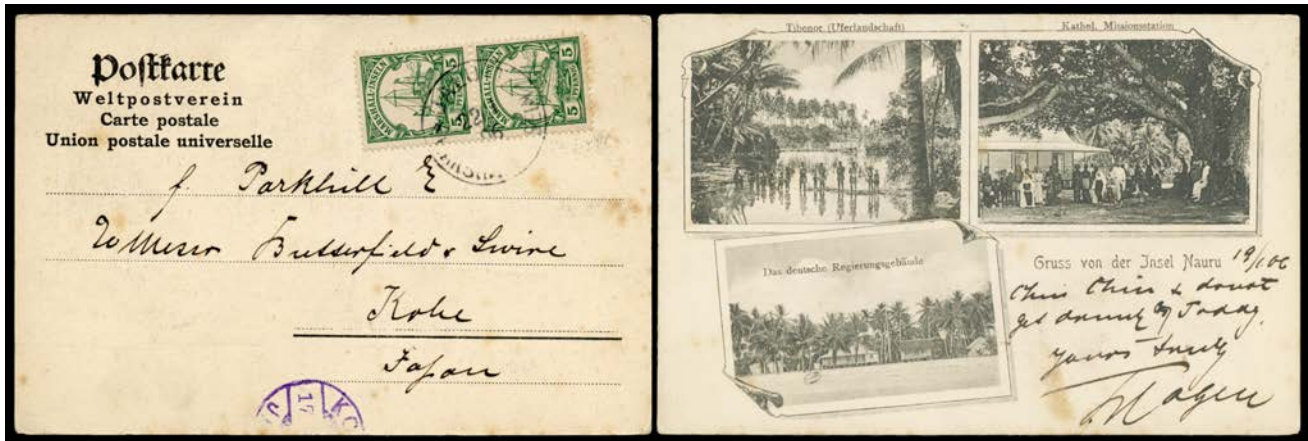 Postkarte
Weltpostverein
Carte postale
Union postale universelle
MARSHALL-INSELN
5 PFENNIG 5
MARSHALL-INSELN
5 PFENNIG 5
f. Parkhill
Butterfield & Swire
Kobe
Japan
Tibenor (Uferlandschaft)
Kathol. Missionsstation
Das deutsche Regierungsgebäude
Gruss von der Insel Nauru 19/1 06
Chin Chin & donot
get drunk Today.
yours truly